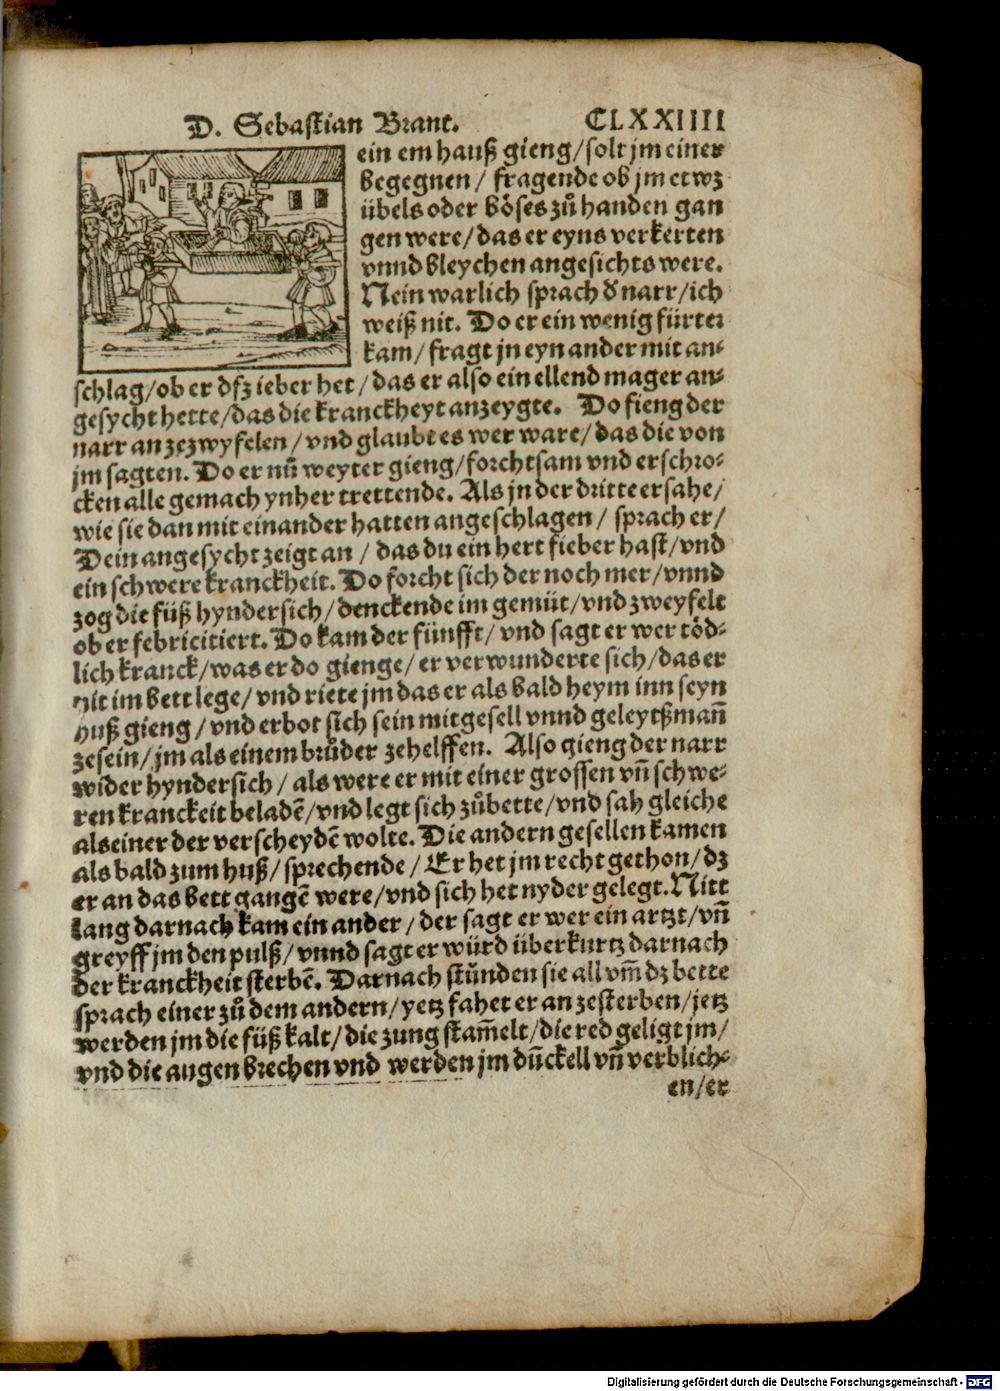 D. Sebastian Brant. CLXXIIII
ein em hauß gieng/solt jm einer
begegnen/ fragende ob jm etwz
übels oder böses zů handen gan
gen were/das er eyns verkerten
vnnd bleychen angesichts were.
Nein warlich sprach d narr/ich
weiß nit. Do er ein wenig fürter
kam/fragt jn eyn ander mit an⸗
schlag/ob er dfz ieber het/das er also ein ellend mager an⸗
gesycht hette/das die kranckheyt anzeygte. Do fieng der
narr an zezwyfelen/vnd glaubt es wer ware/das die von
jm sagten. Do er nū weyter gieng/forchtsam vnd erschro⸗
cken alle gemach ynher trettende. Als jn der dritte ersahe/
wie sie dan mit einander hatten angeschlagen/ sprach er/
Dein angesycht zeigt an / das du ein hert fieber hast/vnd
ein schwere kranckheit. Do forcht sich der noch mer/vnnd
zog die füß hyndersich/denckende im gemüt/vnd zweyfelt
ob er febricitiert. Do kam der fünfft/ vnd sagt er wer töd⸗
lich kranck/was er do gienge/er verwunderte sich/das er
nit im bett lege/vnd riete jm das er als bald heym inn seyn
huß gieng/vnd erbot sich sein mitgesell vnnd geleytßmañ
zesein/jm als einem brůder zehelffen. Also gieng der narr
wider hyndersich/als were er mit einer grossen vñ schwe⸗
ren kranckeit beladē/vnd legt sich zů bette/vnd sah gleiche
als einer der verscheydē wolte. Die andern gesellen kamen
als bald zum huß/sprechende/Er het jm recht gethon/dz
er an das bett gangē were/vnd sich het nyder gelegt. Nitt
lang darnach kam ein ander/der sagt er wer ein artzt/vñ
greyff jm den pulß/vnnd sagt er würd über kurtz darnach
der kranckheit sterbē. Darnach stůnden sie all vm̄ dz bette
sprach einer zů dem andern/yetz fahet er an zesterben/jetz
werden jm die füß kalt/die zung stam̄elt/die red geligt jm/
vnd die augen brechen vnd werden jm dūckell vñ verblich⸗
en/er
Digitalisierung gefördert durch die Deutsche Forschungsgemeinschaft - DFG